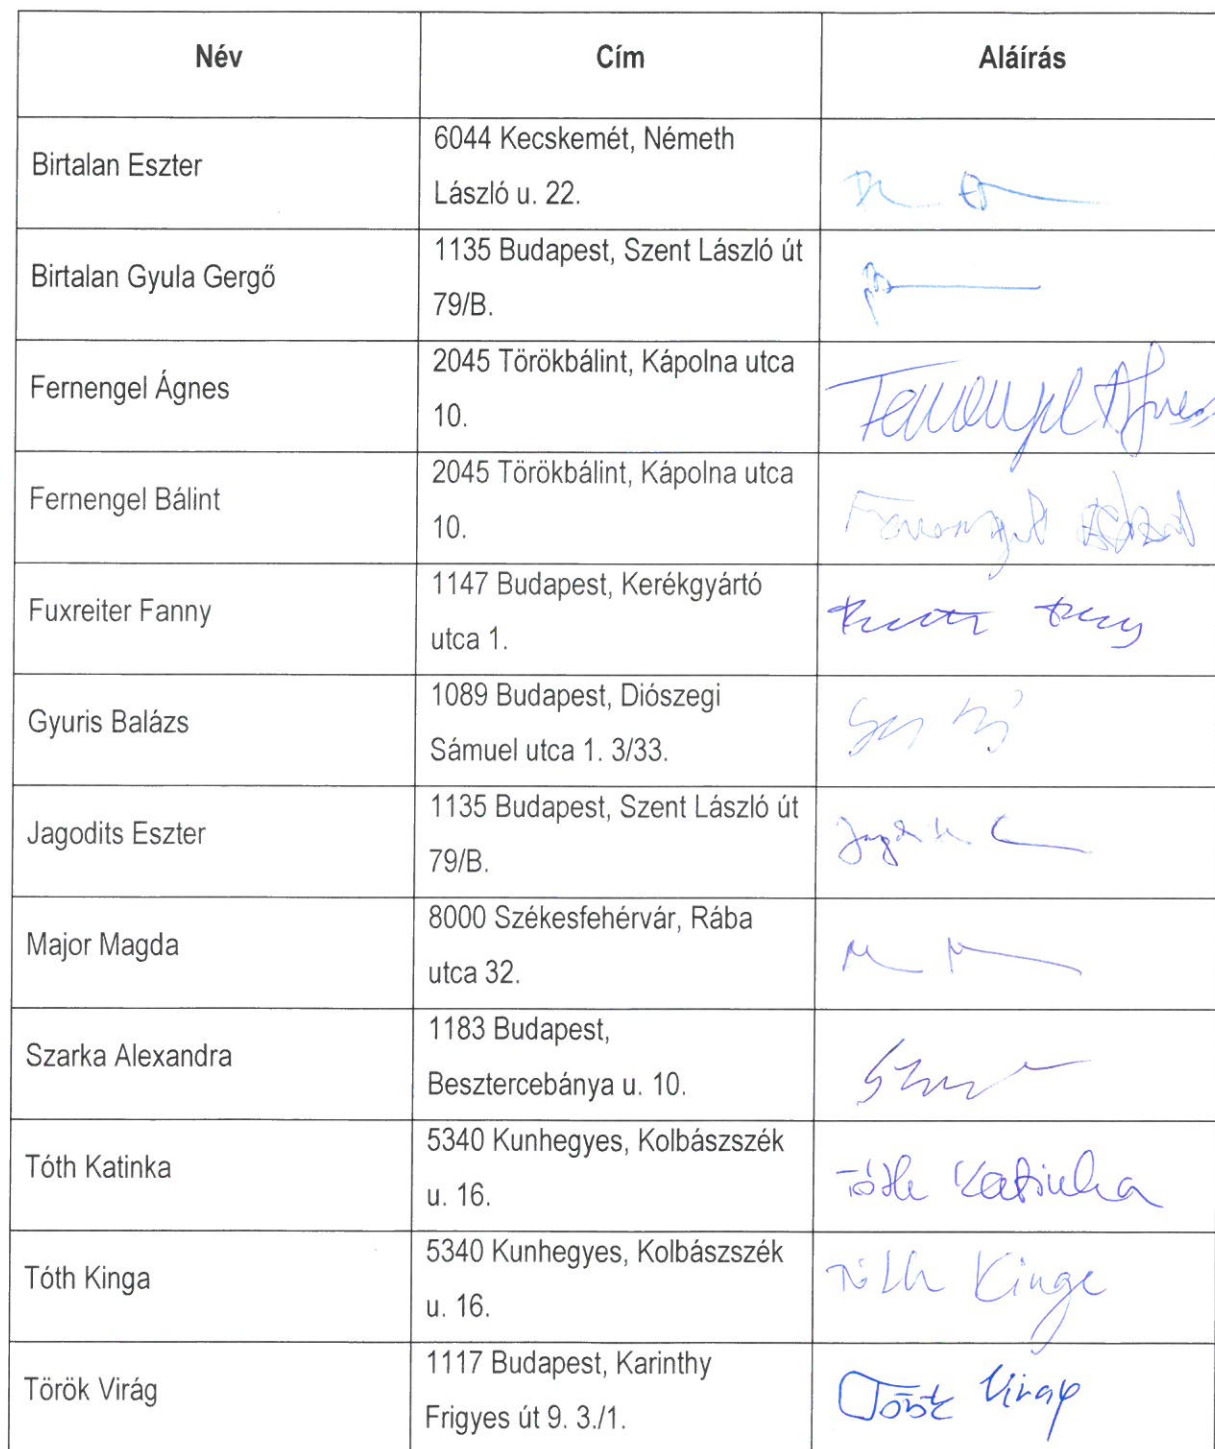 Név Cím Aláírás
Birtalan Eszter
6044 Kecskemét, Németh
László u. 22.
Birtalan Gyula Gergő
1135 Budapest, Szent László út
79/B.
Fernengel Ágnes
2045 Törökbálint, Kápolna utca
10.
Fernengel Ágnes
Fernengel Bálint
2045 Törökbálint, Kápolna utca
10.
Fernengel Bálint
Fuxreiter Fanny
1147 Budapest, Kerékgyártó
utca 1.
Gyuris Balázs
1089 Budapest, Diószegi
Sámuel utca 1. 3/33.
Jagodits Eszter
1135 Budapest, Szent László út
79/B.
Major Magda
8000 Székesfehérvár, Rába
utca 32.
Szarka Alexandra
1183 Budapest,
Besztercebánya u. 10.
Tóth Katinka
5340 Kunhegyes, Kolbászszék
u. 16.
Tóth Katinka
Tóth Kinga
5340 Kunhegyes, Kolbászszék
u. 16.
Tóth Kinga
Török Virág
1117 Budapest, Karinthy
Frigyes út 9. 3./1.
Török Virág